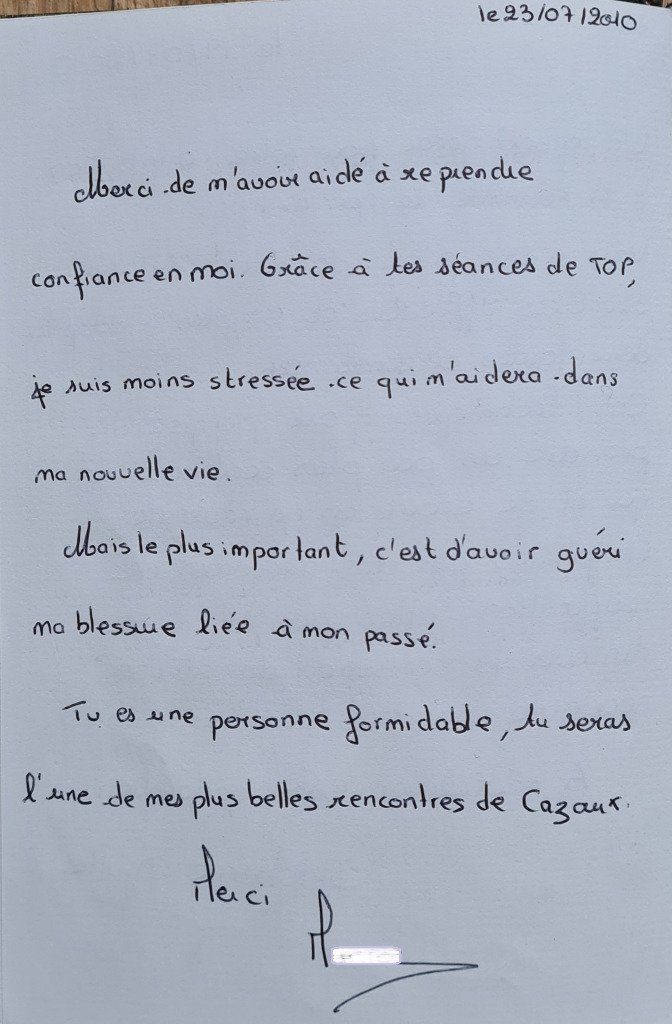 le 23/07/2010
Merci de m'avoir aidé à reprendre
confiance en moi. Grâce à tes séances de TOP,
je suis moins stressée ce qui m'aidera dans
ma nouvelle vie.
Mais le plus important, c'est d'avoir guéri
ma blessure liée à mon passé.
Tu es une personne formidable, tu seras
l'une de mes plus belles rencontres de Cazaux.
Merci